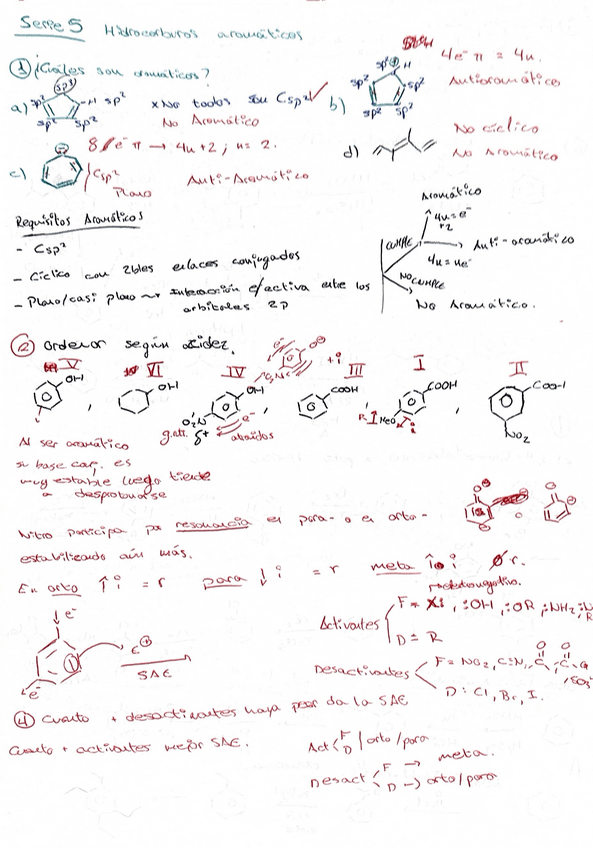 Serie 5 Hidrocarburos aromáticos
① ¿Cuáles son aromáticos?
a) sp³ sp² H sp² sp² sp² x No todos son Csp² ✓
No Aromático
b) H sp² sp² sp² sp² 4e⁻π = 4n.
Antiaromático
c) 8 e⁻π → 4n+2; n=2.
Csp²
Plano
Anti-Aromático
d) No cíclico
No Aromático
Requisitos Aromáticos
- Csp²
- Cíclico con 2bles enlaces conjugados
- Plano/casi plano ~→ Interacción efectiva entre los
orbitales 2p
Aromático
4n=e⁻
+2
CUMPLE → Anti-aromático
4n=ne⁻
NO CUMPLE
No Aromático.
② Ordenar según acidez.
V VI IV III I II
OH , OH , O₂N OH , COOH , MeO COOH , COOH NO₂
Al ser aromático
su base conj. es
muy estable luego tiende
a desprotonarse
g.att. δ+ e⁻
Nitro participa por resonancia en para- o en orto-
estabilizado aún más.
En orto ↑i = r para ↓i = r meta i r.
↓e⁻
① E⊕
SAE
e⁻
Activantes F = :OH, :OR, :NH₂, :N R
D = R
Desactivantes F = NO₂, C≡N, C O, C O
D: Cl, Br, I.
④ Cuanto + desactivantes haya peor da la SAE
Cuanto + activantes mejor SAE.
Act F D | orto/para
Desact F → meta.
D → orto/para